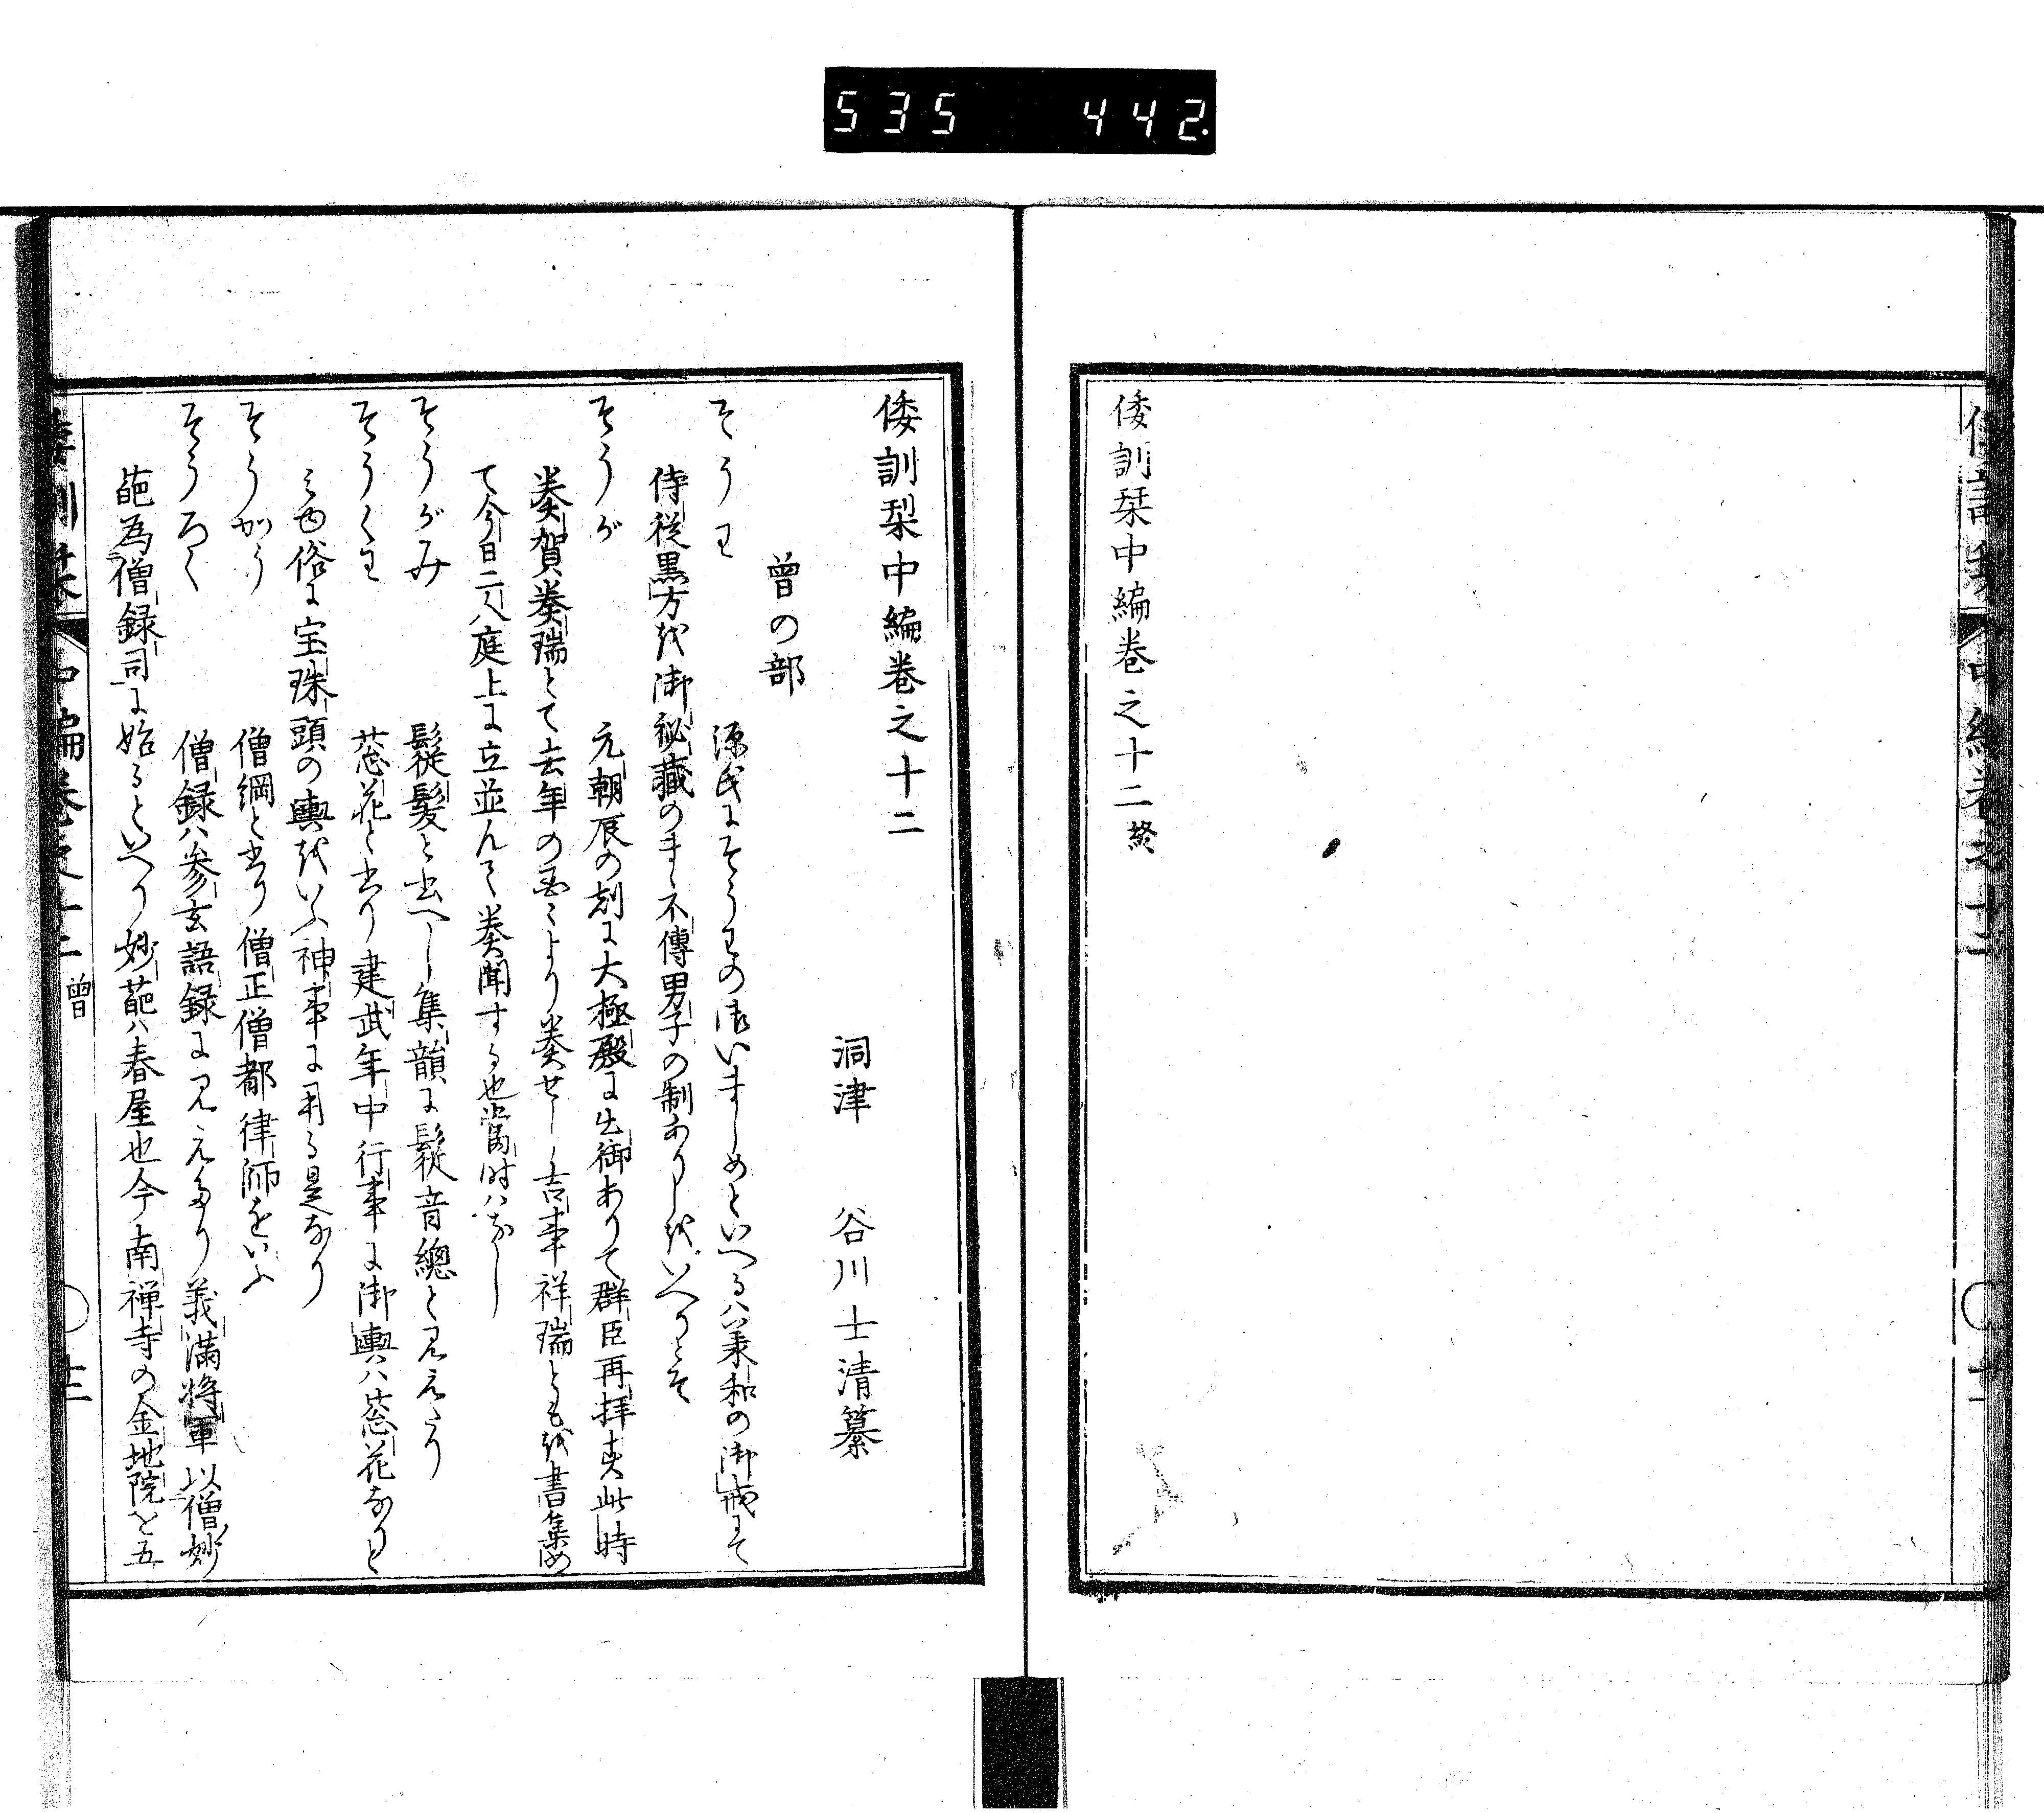 535 442.
倭訓栞中編巻之十二終
倭訓栞中編巻之十二
洞津 谷川士清纂
曾の部
そうわ 源氏にそうわの御いましめといへるハ承和の御戒にて
侍従黒方を御秘蔵のまゝ不傳男子の制ありしをいへりとそ
そうが 元朝辰の刻に大極殿に出御ありて群臣再拝す此時
奏賀奏瑞とて去年の國〻より奏せし吉事祥瑞ともを書集め
て今日二人庭上に立並んて奏聞する也當時ハなし
そうがみ 鬆髪と書へし集韻に鬆音總と見えたり
そうくわ 葱花と書り建武年中行事に御輿ハ葱花なりと
みゆ俗に宝珠頭の輿をいふ神事に用る是なり
そうかう 僧綱と書り僧正僧都律師をいふ
そうろく 僧録ハ参玄語録に見えたり義満将軍以僧妙
葩為僧録司に始るといへり妙葩ハ春屋也今南禅寺の金地院を五
倭訓栞 中編巻之十二 曾 ○ 十二